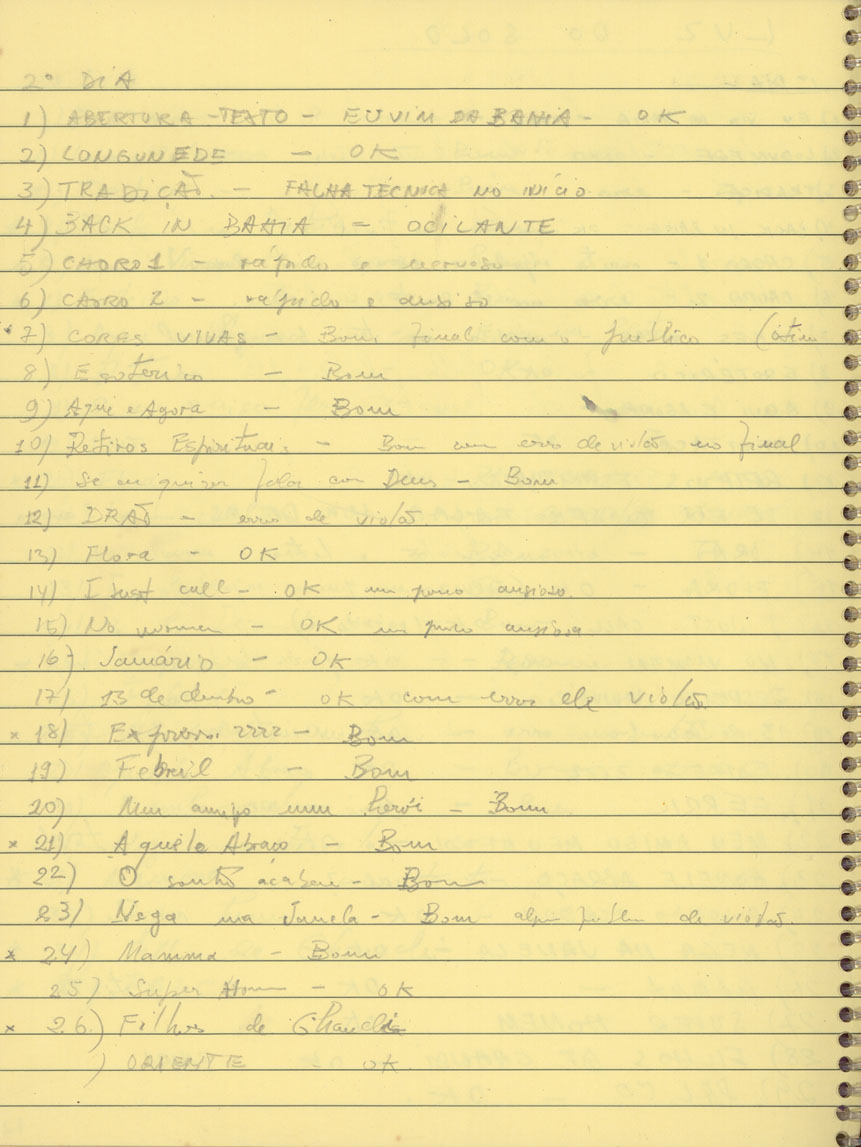 2º DIA
1) ABERTURA - TEXTO - EU VIM DA BAHIA - OK
2) LONGUNEDE - OK
3) TRADIÇÃO. - FALHA TÉCNICA NO INÍCIO
4) BACK IN BAHIA - OCILANTE
5) CHORO 1 - rápido e nervoso
6) CHORO 2 - rápido e ansioso
* 7) CORES VIVAS - Bom final com o público (ótimo
8) Esoterico - Bom
9) Aqui e Agora - Bom
10) Retiros Espirituais - Bom com erro de violão no final
11) Se eu quiser falar com Deus - Bom
12) DRÃO - erro de violão
13) Flora - OK
14) I Just call - OK um pouco ansioso.
15) No woman - OK um pouco ansiosa
16) Januário - OK
17) 13 de dezembro - OK com erros de violão
* 18) Expresso 2222 - Bom
19) Febril - Bom
20) Meu amigo meu herói - Bom
* 21) Aquele Abraço - Bom
22) O sonho acabou - Bom
23) Nega na Janela - Bom algum de violão.
* 24) Mamma - Bom
25) Super Homem - OK
* 26.) Filhos de Ghandi
) ORIENTE OK.